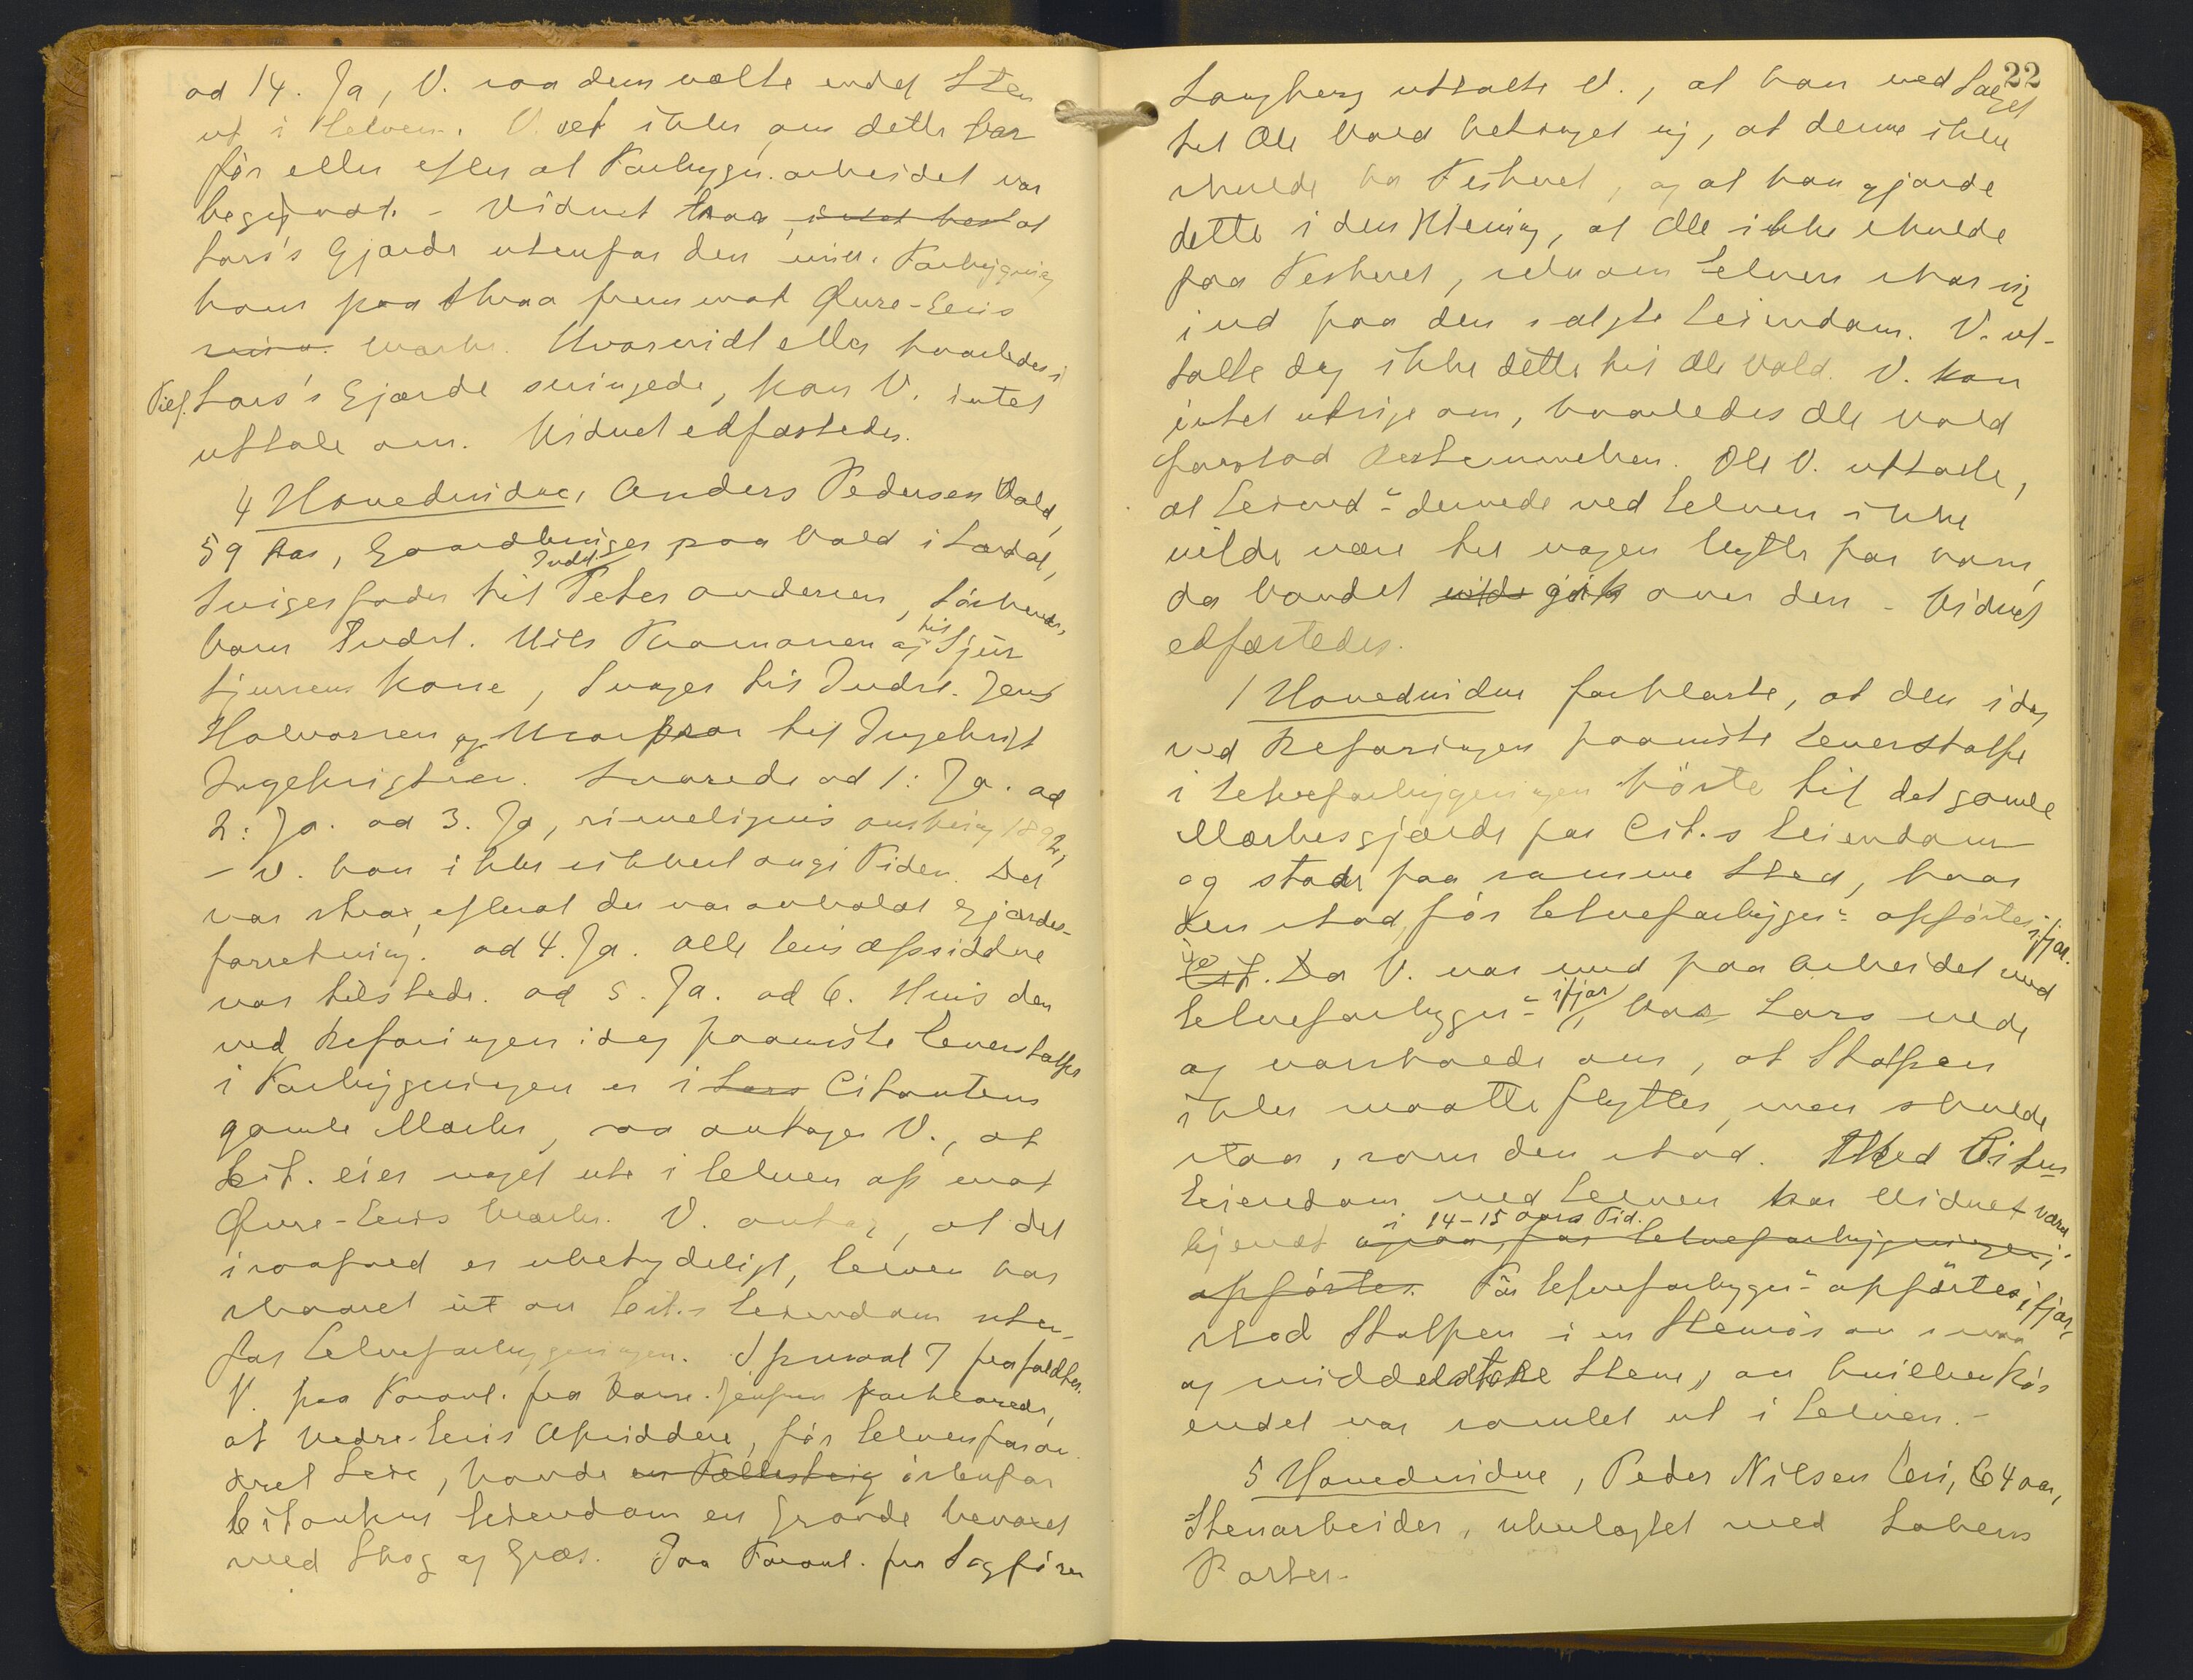 ad 14. Ja, V. saa dem vælte endel Sten
ut i Elven. V. vet ikke, om dette var
før eller efter at Forbygn. arbeidet var
begyndt. - Vidnet saa, at
Lars's Gjærde utenfor den Forbygning
kom paa Skraa frem mot Øvre-Eris
Mark. Hvorvidt eller hvorledes
Lars's Gjærde svingede, kan V. intet
uttale om. Vidnet edfæstedes.
4 Hovedvidne, Anders Pedersen Vold,
59 Aar, Gaardbruger paa Vold i Lærdal,
Svigerfader til Indst. Peter Andersen, Søskende-
barn Indst. Nils Thomassen og til Sjur
Sjursens Kone, Svoger til Indst. Jens
Halvorsen og til Ingebrigt
Ingebrigtsen. Svarede ad 1: Ja. ad
2: Ja. ad 3. Ja, rimeligvis omkring 1892,
- V. kan ikke sikkert angi Tiden. Det
var strax, efterat der var avholdt Gjærdes-
forretning. ad 4. Ja. Alle Eris Opsiddere
var tilstede. ad 5. Ja. ad 6. Hvis den
ved Befaringen idag paaviste Ener stolpe
i Forbygningen er i Lars Citantens
gamle Mark, saa antager V., at
Cit. eier noget ute i Elven op mot
Øvre-Eris Mark. V. antar, at det
isaafald er ubetydeligt, Elven har
skaaret ut av Cit.s Eiendom uten-
for Elveforbygningen. Spørsmaal 7 frafaldtes.
V. paa Foranl. fra forklarede,
at Nedre-Eris Opsiddere, før Elven foran-
dret Leie, havde en Fællesteig østenfor
Citantens Eiendom en Grande bevoxet
med Skog og Græs. Paa Foranl. fra Sagfører
22
Langberg uttalte V., at han ved Salget
til Ole Vold betinget sig, at denne ikke
skulde ha Fiskeret, og at han gjorde
dette i den Mening, at Ole ikke skulde
faa Fiskeret, selv om Elven skar sig
ind paa den solgte Eiendom. V. ut-
talte dog ikke dette til Ole Vold. V. kan
intet utsige om, hvorledes Ole Vold
forstod Bestemmelsen. Ole V. uttalte,
at Eiend- dernede ved Elven ikke
vilde være til nogen Nytte for ham,
da Vandet vilde gik over den - Vidnet
edfæstedes.
1 Hovedvidne forklarte, at den idag
ved Befaringen paaviste Enerstolpe
i Elveforbygningen hørte til det gamle
Markesgjærde for Cit.s Eiendom
og stod paa samme Sted, hvor
den stod, før Elveforbygn- opførtes ifjor.
Da V. var med paa Arbeidet med
Elveforbygn- ifjor, var Lars nede
og varskoede om, at Stolpen
ikke maatte flyttes, men skulde
staa, som den stod. Med Citens
Eiendom ved Elven har Vidnet været
kjendt i 14-15 Aars Tid.
opførtes. Før Elveforbygn- opførtes ifjor,
stod Stolpen i en Stenrøs av smaa
og middelstore Stene, av hvilken Røs
endel var ramlet ut i Elven. -
5 Hovedvidne, Peder Nilsen Eri, 64 aar,
Stenarbeider, ubeslægtet med Sakens
Parter -